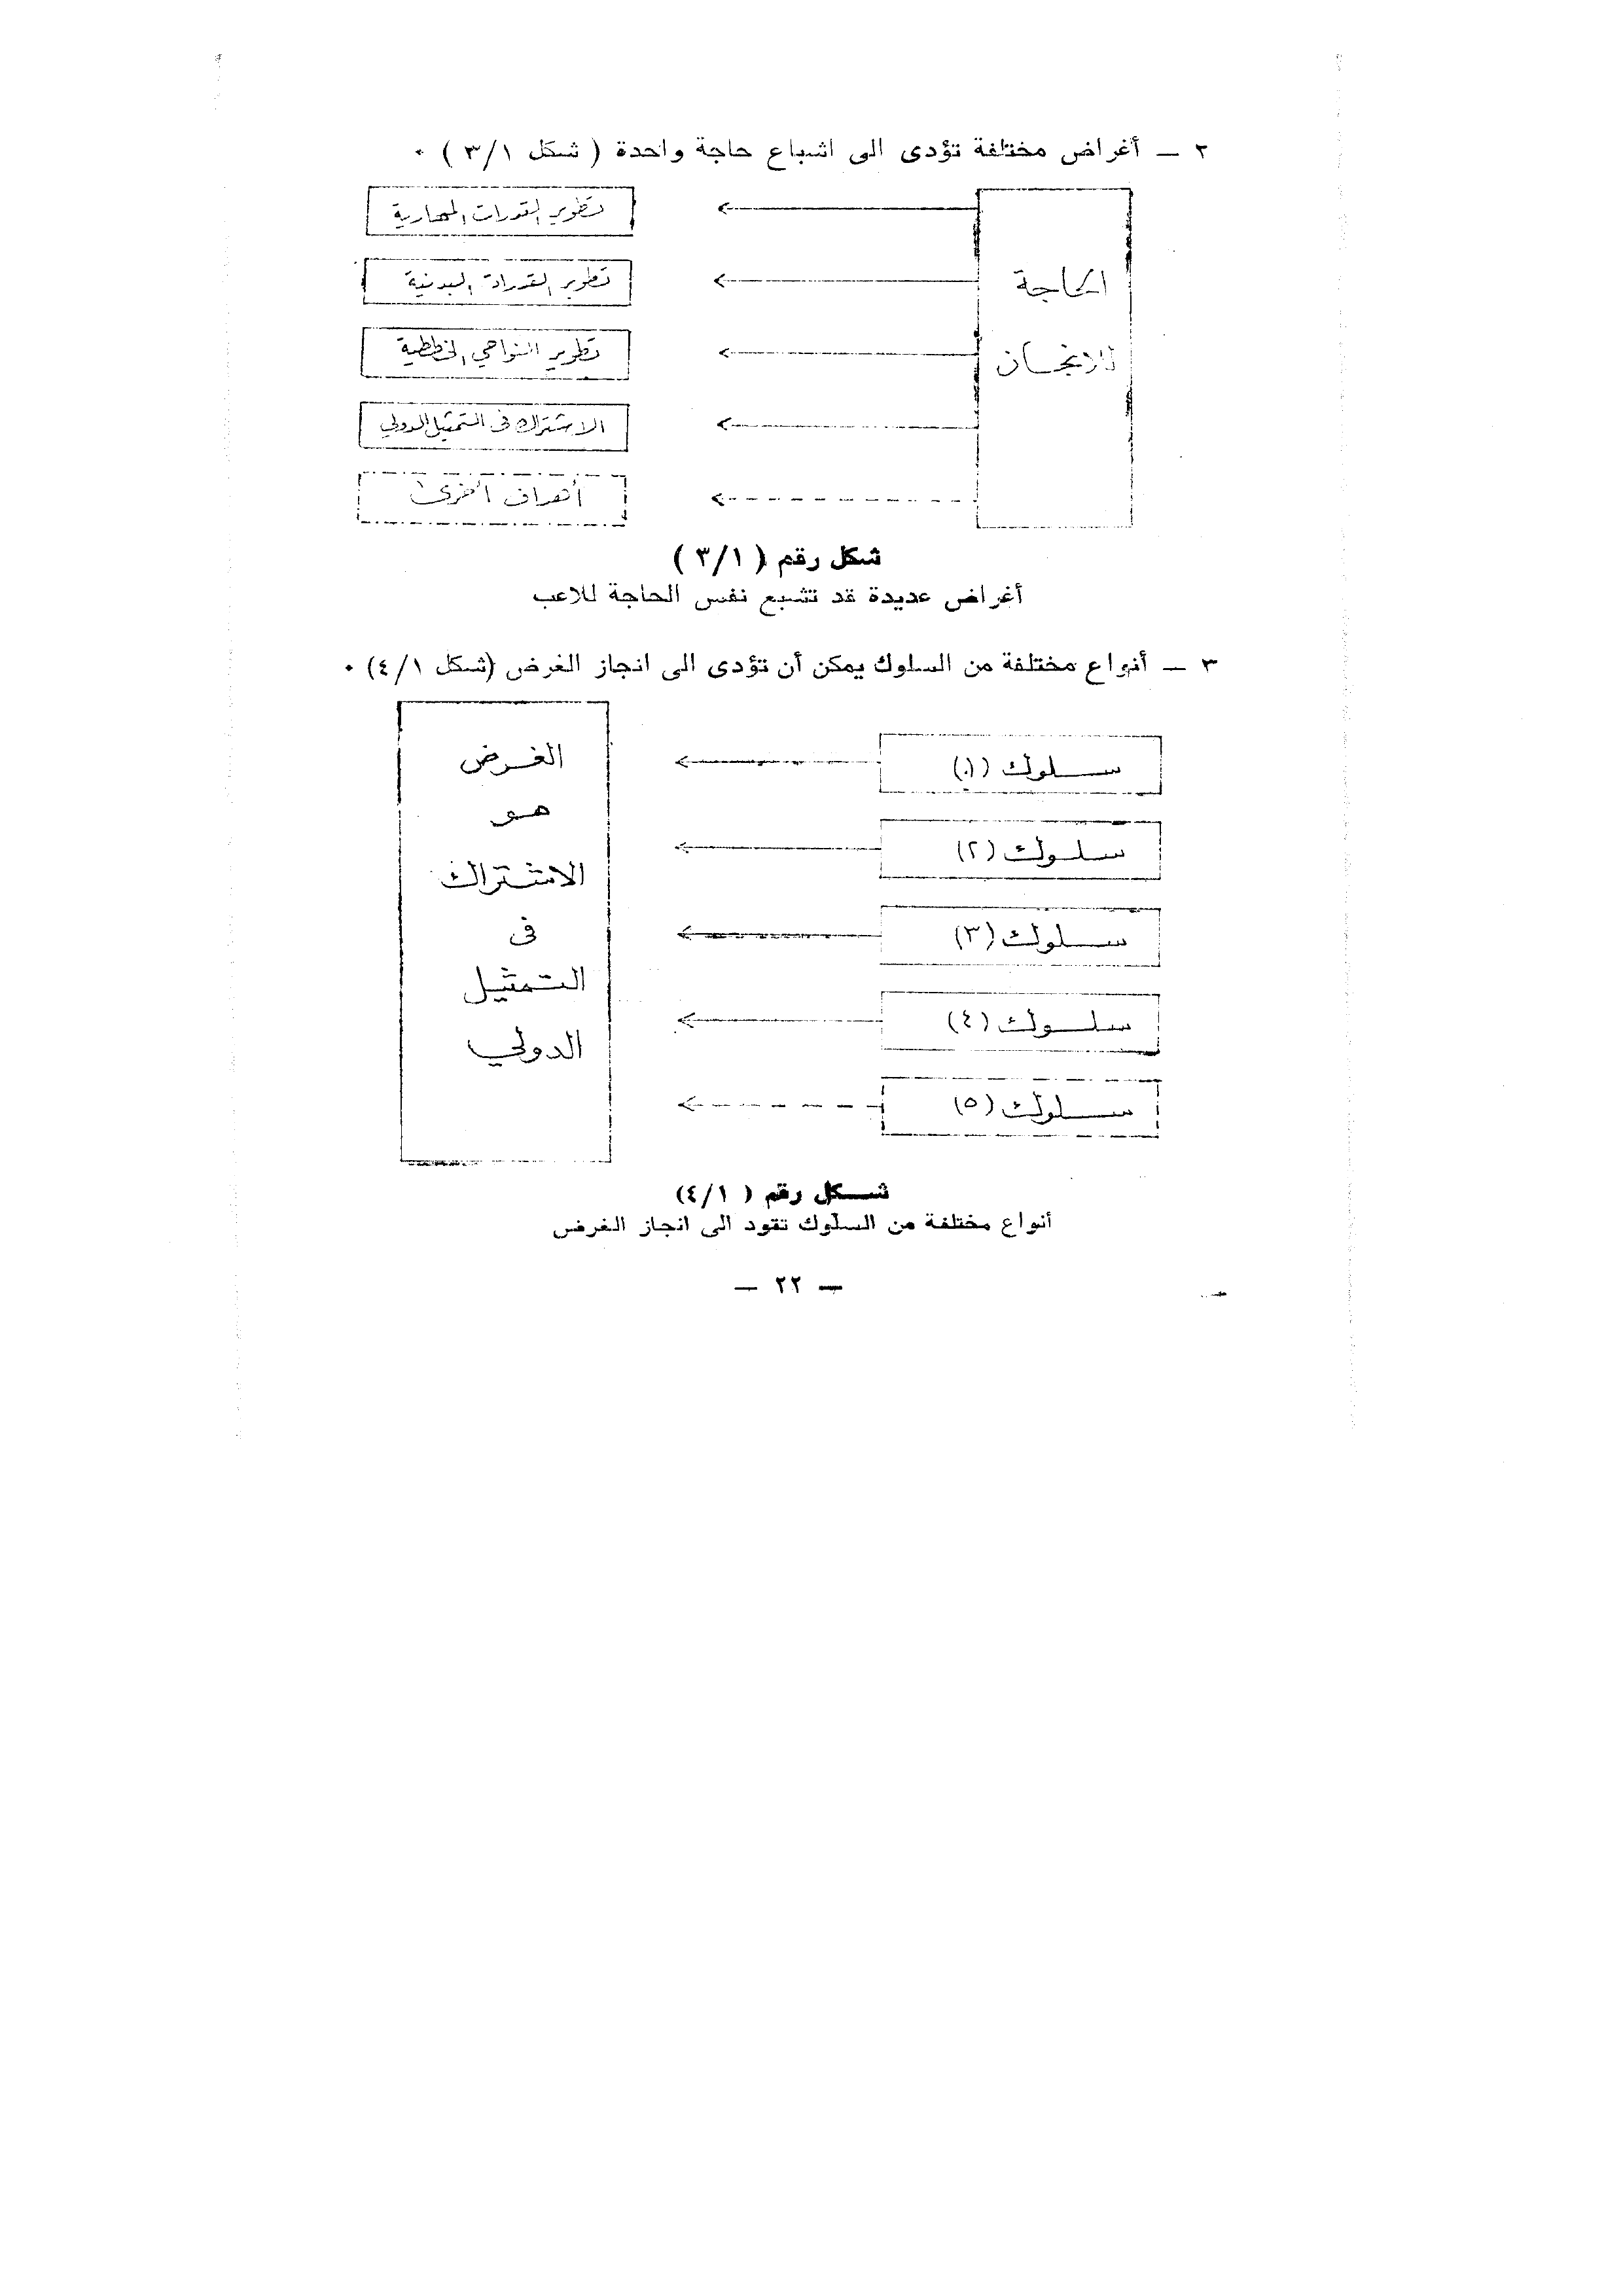 ٢ — أغراض مختلفة تؤدى الى اشباع حاجة واحدة ( شكل ٣/١ ) ٠
الحاجة
للانجاز
تطوير القدرات المهارية
تطوير القدرات البدنية
تطوير النواحي الخططية
الاشتراك فى التمثيل الدولي
أهداف أخرى
شكل رقم ( ٣/١ )
أغراض عديدة قد تشبع نفس الحاجة للاعب
٣ — أنواع مختلفة من السلوك يمكن أن تؤدى الى انجاز الغرض (شكل ٤/١) ٠
سلوك (١)
سلوك (٢)
سلوك (٣)
سلوك (٤)
سلوك (٥)
الغرض
هو
الاشتراك
فى
التمثيل
الدولي
شكل رقم ( ٤/١)
أنواع مختلفة من السلوك تقود الى انجاز الغرض
— ٢٢ —